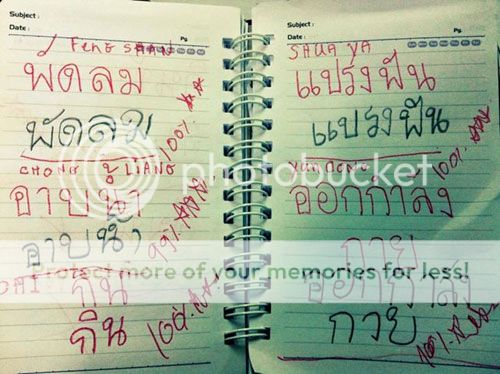 Subject :
Date :
Pg.
FENG SHAN
พัดลม
พัดลม
100%
CHONG LIANG
อาบน้ำ
อาบน้ำ
99%
กิน
กิน
100%
Subject :
Date :
Pg.
SHUA YA
แปรงฟัน
แปรงฟัน
100%
YUN DONG
ออกกำลัง
กาย
ออกกำลัง
กาย
100%
photobucket
Protect more of your memories for less!